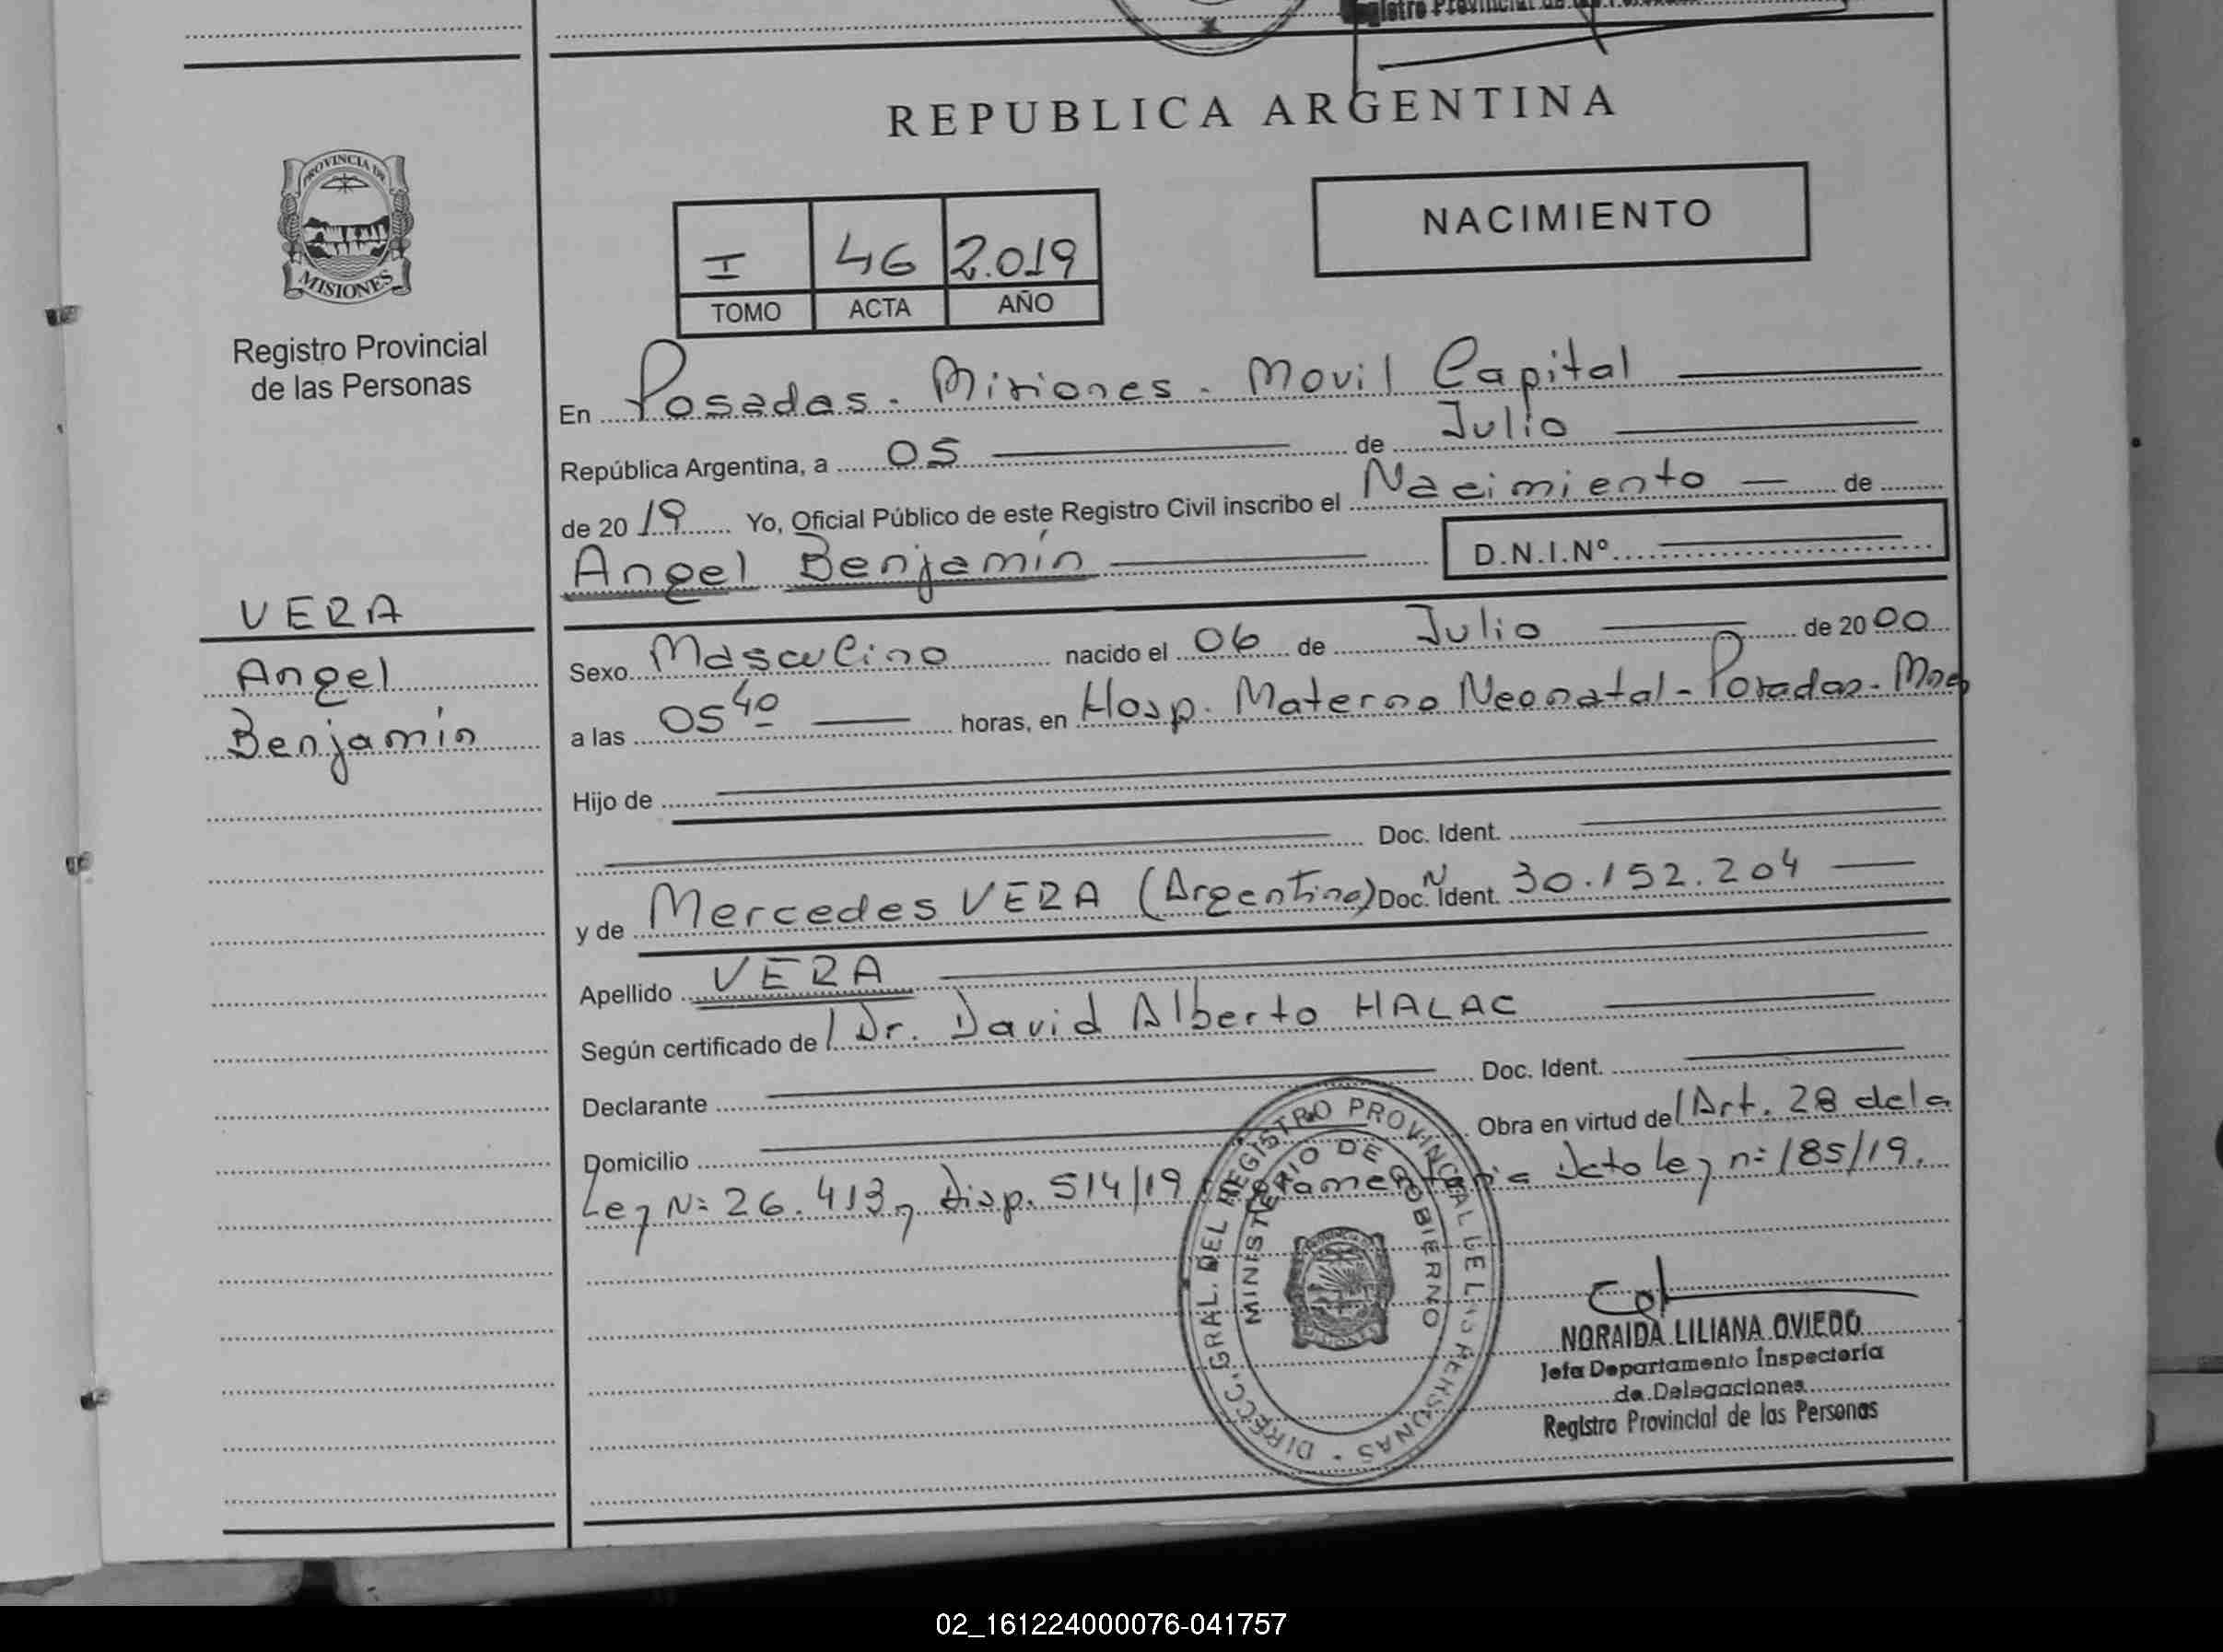 Registro Provincial de las Personas
REPUBLICA ARGENTINA
PROVINCIA DE
MISIONES
Registro Provincial
de las Personas
I 46 2.019
TOMO ACTA AÑO
NACIMIENTO
En Posadas - Misiones - Movil Capital
República Argentina, a 05 de Julio
de 2019 Yo, Oficial Público de este Registro Civil inscribo el Nacimiento de
Angel Benjamín D.N.I.Nº
VERA
Angel
Benjamín
Sexo Masculino nacido el 06 de Julio de 2000
a las 05 40 horas, en Hosp. Materno Neonatal - Posadas - Mnes
Hijo de
Doc. Ident.
y de Mercedes VERA (Argentina) Doc. N Ident. 30.152.204
Apellido VERA
Según certificado del Dr. David Alberto HALAC
Declarante Doc. Ident.
Domicilio Obra en virtud del Art. 28 de la
Ley Nº 26.413 y Disp. 514/19 Dcto Ley nº 185/19.
DIRECC. GRAL. DEL REGISTRO PROVINCIAL DE LAS PERSONAS
MINISTERIO DE GOBIERNO
NORAIDA LILIANA OVIEDO
Jefa Departamento Inspectoría
de Delegaciones
Registro Provincial de las Personas
02_161224000076-041757